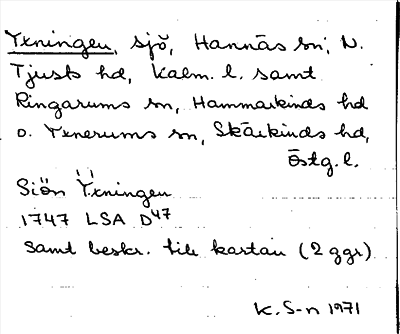 Yxningen, sjö, Hannäs sn, N.
Tjusts hd, Kalm. l. samt
Ringarums sn, Hammarkinds hd
o. Yxnerums sn, Skärkinds hd,
Östg. l.
Siön Ÿxningen
1747 LSA D47
samt beskr. till kartan (2 ggr)
K. S-n 1971